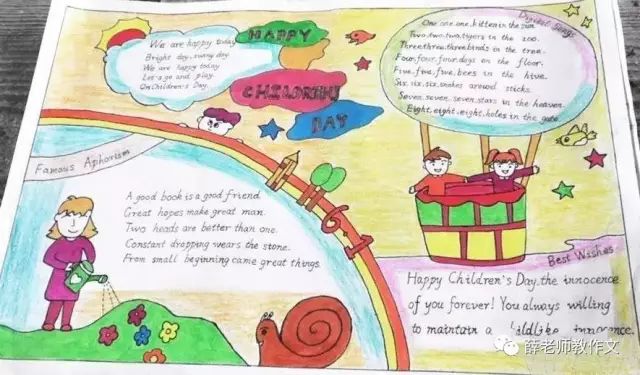 We are happy today
Bright day, sunny day
We are happy today
Let's go and play
On Children's Day.
HAPPY
CHILDREN'S
DAY
Digital Song
One one one, kitten in the sun.
Two, two, two, tigers in the zoo.
Three, three, three, birds in the tree.
Four, four, four, dogs on the floor.
Five, five, five, bees in the hive.
Six, six, six, snakes around sticks.
Seven, seven, seven, stars in the heaven.
Eight, eight, eight, holes in the gate.
Famous Aphorism
A good book is a good friend.
Great hopes make great man.
Two heads are better than one.
Constant dropping wears the stone.
From small beginning came great things.
6·1
Best Wishes
Happy Children's Day, the innocence
of you forever! You always willing
to maintain a childlike innocence.
薛老师教作文